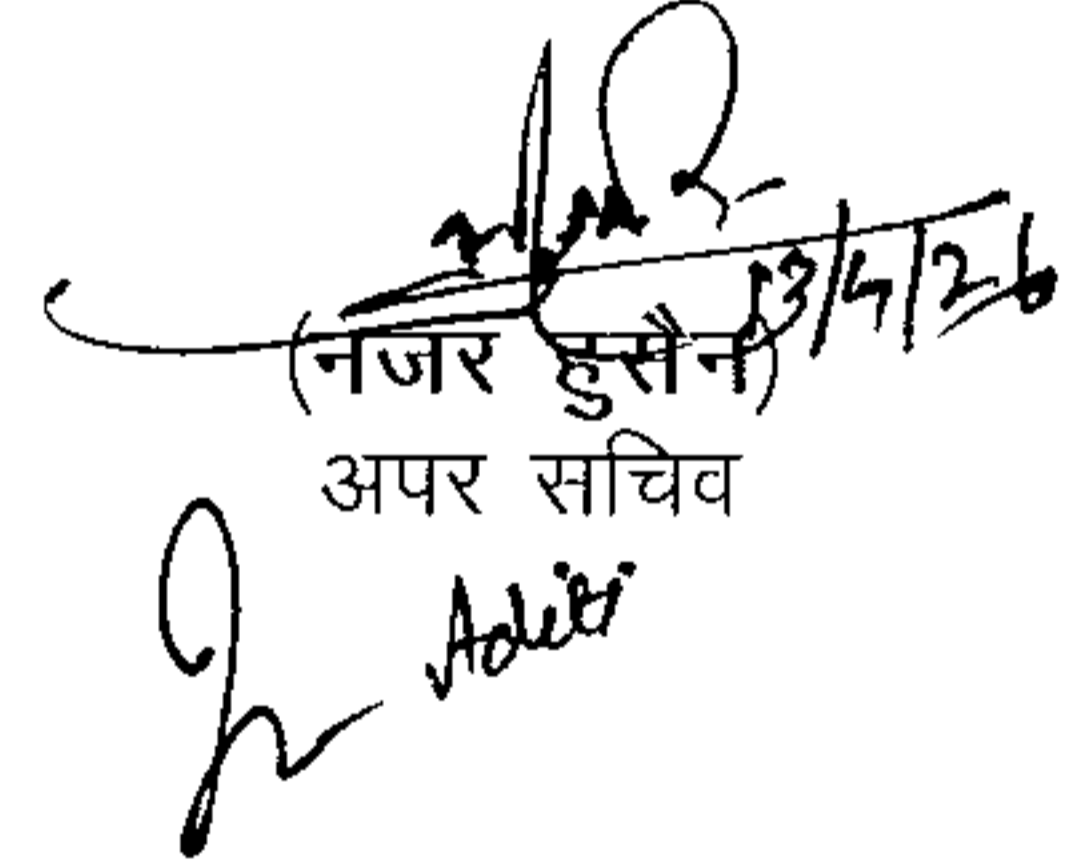 13/4/26
(नजर हुसैन)
अपर सचिव
Aditi